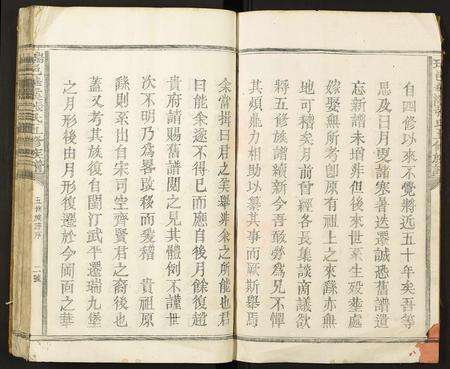 自四修以來不覺將近五十年矣吾等
思及日月更諸寒暑迭遷誠恐舊譜遺
忘新譜未增非但後來世系生殁塟處
嫁娶無所考卽原有祖上之來歷亦無
地可稽矣月前曾經各長集議商議欲
將五修族譜續新今吾敢勞爲兄不憚
其煩鼎力相助以舉其事而厥斯舉焉
余當揖曰君之美舉非余之所能也君
曰能余遂不得巳而應自後月餘復趨
貴府請賜舊譜閱之見其體例不謹世
次不明乃爲畧改移而發稽 貴祖原
繇則系出自宋司空齊賢君之裔後也
蓋又考其族復自閩汀武平遷瑞九堡
之月形後由月形復遷於今閫面之華
五修族譜序
二號